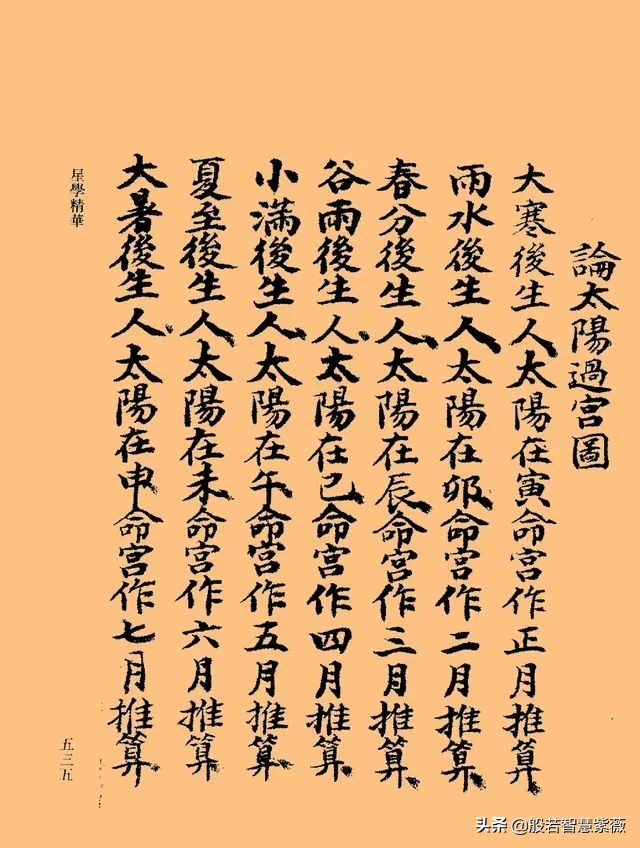 論太陽過宮圖
大寒後生人太陽在寅命宮作正月推算
雨水後生人太陽在卯命宮作二月推算
春分後生人太陽在辰命宮作三月推算
谷雨後生人太陽在巳命宮作四月推算
小滿後生人太陽在午命宮作五月推算
夏至後生人太陽在未命宮作六月推算
大暑後生人太陽在申命宮作七月推算
星學精華
五三五
头条 @般若智慧紫薇